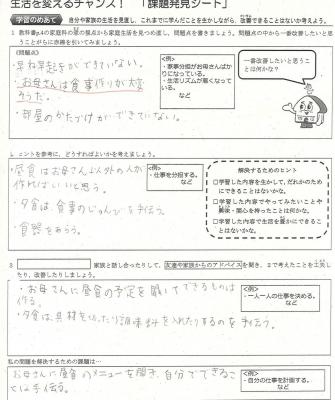 生活を変えるチャンス！ 「課題発見シート」
学習のめあて 自分や家族の生活を見直し、これまでに学んだことを生かしながら、改善できることはないか考えよう。
1 教科書p.4の家庭科の窓の視点から家庭生活を見つめ直し、問題点を書きましょう。問題点の中から一番改善したいと思うことがらに赤線を引いてみましょう。
(問題点)
・早ね早起きができていない。
・お母さんは食事作りが大変そうだ。
・部屋のかたづけができていない。
<例>
・家事分担がお母さんばかりになっている。
・生活リズムが悪くなっている。
など
一番改善したいと思うことは何かな？
2 ヒントを参考に、どうすればよいかを考えましょう。
・昼食はお母さん以外の人が作ればいいと思う。
・夕食は、食事のじゅんびを手伝う。
・食器をあらう。
<例>
・仕事を分担する。
など
解決するためのヒント
□学習した内容を生かして、だれかのためにできることはないかな。
□学習した内容でやってみたいことや興味・関心を持ったことは何かな。
□学習した内容で生活を豊かにできることはないかな。
3
家族と話し合ったりして、友達や家族からのアドバイスを聞き、2で考えたことを工夫したり、改善したりしましょう。
・お母さんに昼食の予定を聞いてできるものは作る。
・夕食は具材を切ったり調味料を入れたりするのを手伝う。
<例>
・一人一人の仕事を決める。
など
私の問題を解決するための課題は…
お母さんに昼食のメニューを聞き、自分でできることは手伝う。
<例>
・自分の仕事を計画する。
など